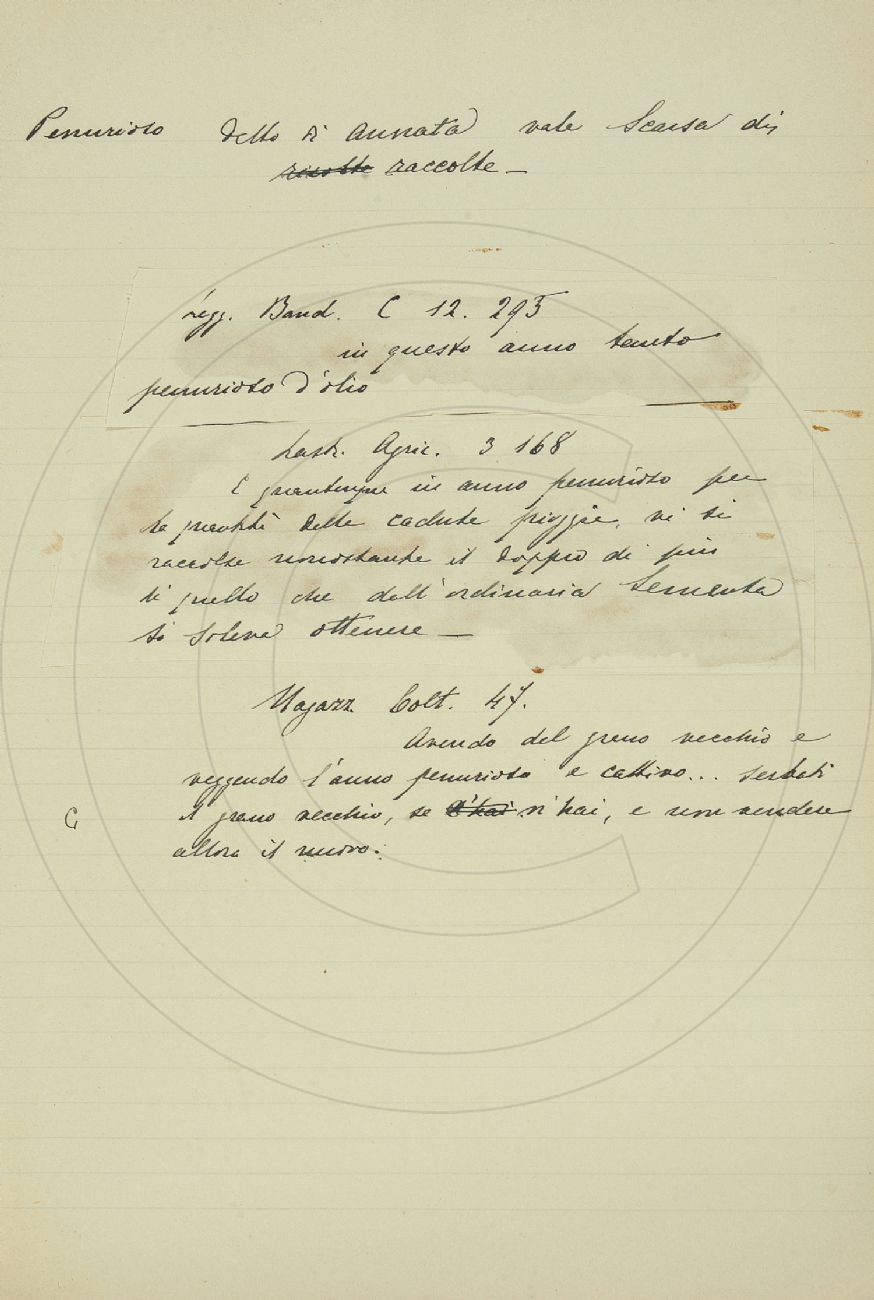 Penurioso detto di annata vale Scarsa di
ricolte raccolte —
Legg. Band. C 12. 295
in questo anno tanto
penurioso d'olio
Lastr. Agric. 3 168
E quantunque in anno penurioso per
la quantità delle cadute pioggie, vi si
raccolse nonostante il doppio di più
di quello che dall'ordinaria Sementa
si soleva ottenere —
Magazz. Colt. 47.
Avendo del grano vecchio e
veggendo l'anno penurioso e cattivo... serbati
C il grano vecchio, se l'hai n'hai, e non vendere
allora il nuovo.